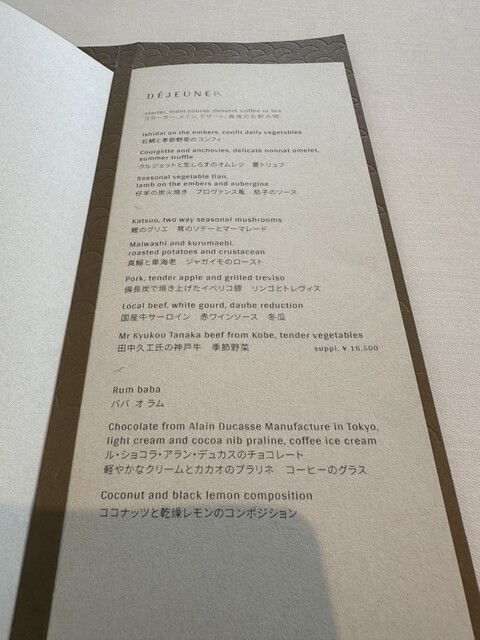 DÉJEUNER
starter, main course, dessert, coffee or tea
スターター、メイン、デザート、食後のお飲み物
Ishidai on the embers, confit daily vegetables
石鯛と季節野菜のコンフィ
Courgette and anchovies, delicate nonnat omelet,
summer truffle
クルジェットと生しらすのオムレツ 夏トリュフ
Seasonal vegetable tian,
lamb on the embers and aubergine
仔羊の炭火焼き プロヴァンス風 茄子のソース
Katsuo, two way seasonal mushrooms
鰹のグリエ 茸のソテーとマーマレード
Maiwashi and kurumaebi,
roasted potatoes and crustacean
真鰯と車海老 ジャガイモのロースト
Pork, tender apple and grilled treviso
備長炭で焼き上げたイベリコ豚 リンゴとトレヴィス
Local beef, white gourd, daube reduction
国産牛サーロイン 赤ワインソース 冬瓜
Mr Kyukou Tanaka beef from Kobe, tender vegetables
田中久工氏の神戸牛 季節野菜 suppl. ¥ 16,500
Rum baba
ババ オ ラム
Chocolate from Alain Ducasse Manufacture in Tokyo,
light cream and cocoa nib praline, coffee ice cream
ル・ショコラ・アラン・デュカスのチョコレート
軽やかなクリームとカカオのプラリネ コーヒーのグラス
Coconut and black lemon composition
ココナッツと乾燥レモンのコンポジション